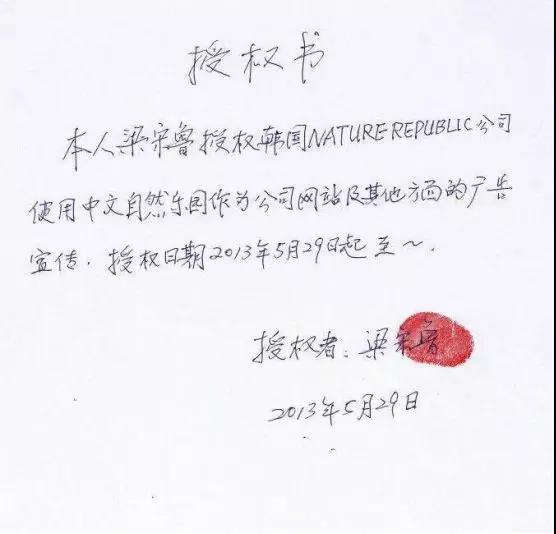 授权书
本人梁宋鲁授权韩国NATURE REPUBLIC公司
使用中文自然乐园作为公司网站及其他方面的广告
宣传.授权日期2013年5月29日起至~.
授权者:梁宋鲁
2013年5月29日